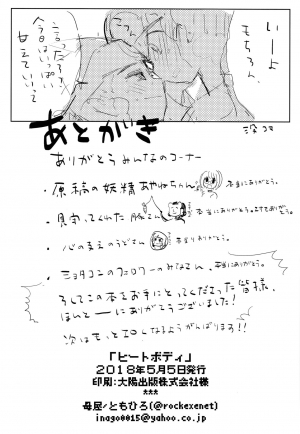 いーよ
もちろん
言ったろ?
今日はいっぱい
甘えていいって
あとがき
ありがとうみんなのコーナー
・原稿の妖精あやねちゃん 本当にありがとう。
・見守ってくれた 本当にありがとう。
・心の支えのうどさん 本当にありがとう。
・ショタコンのフォロワーのみなさん 本当にありがとう。
そしてこの本をお手にとってくださった皆様、
ほんとーにありがとうございました!
次はもっとエロくなるようがんばります!!
「ヒートボディ」
2018年5月5日発行
印刷:大陽出版株式会社様
***
母屋/ともひろ(@rockexenet)
inago0015@yahoo.co.jp